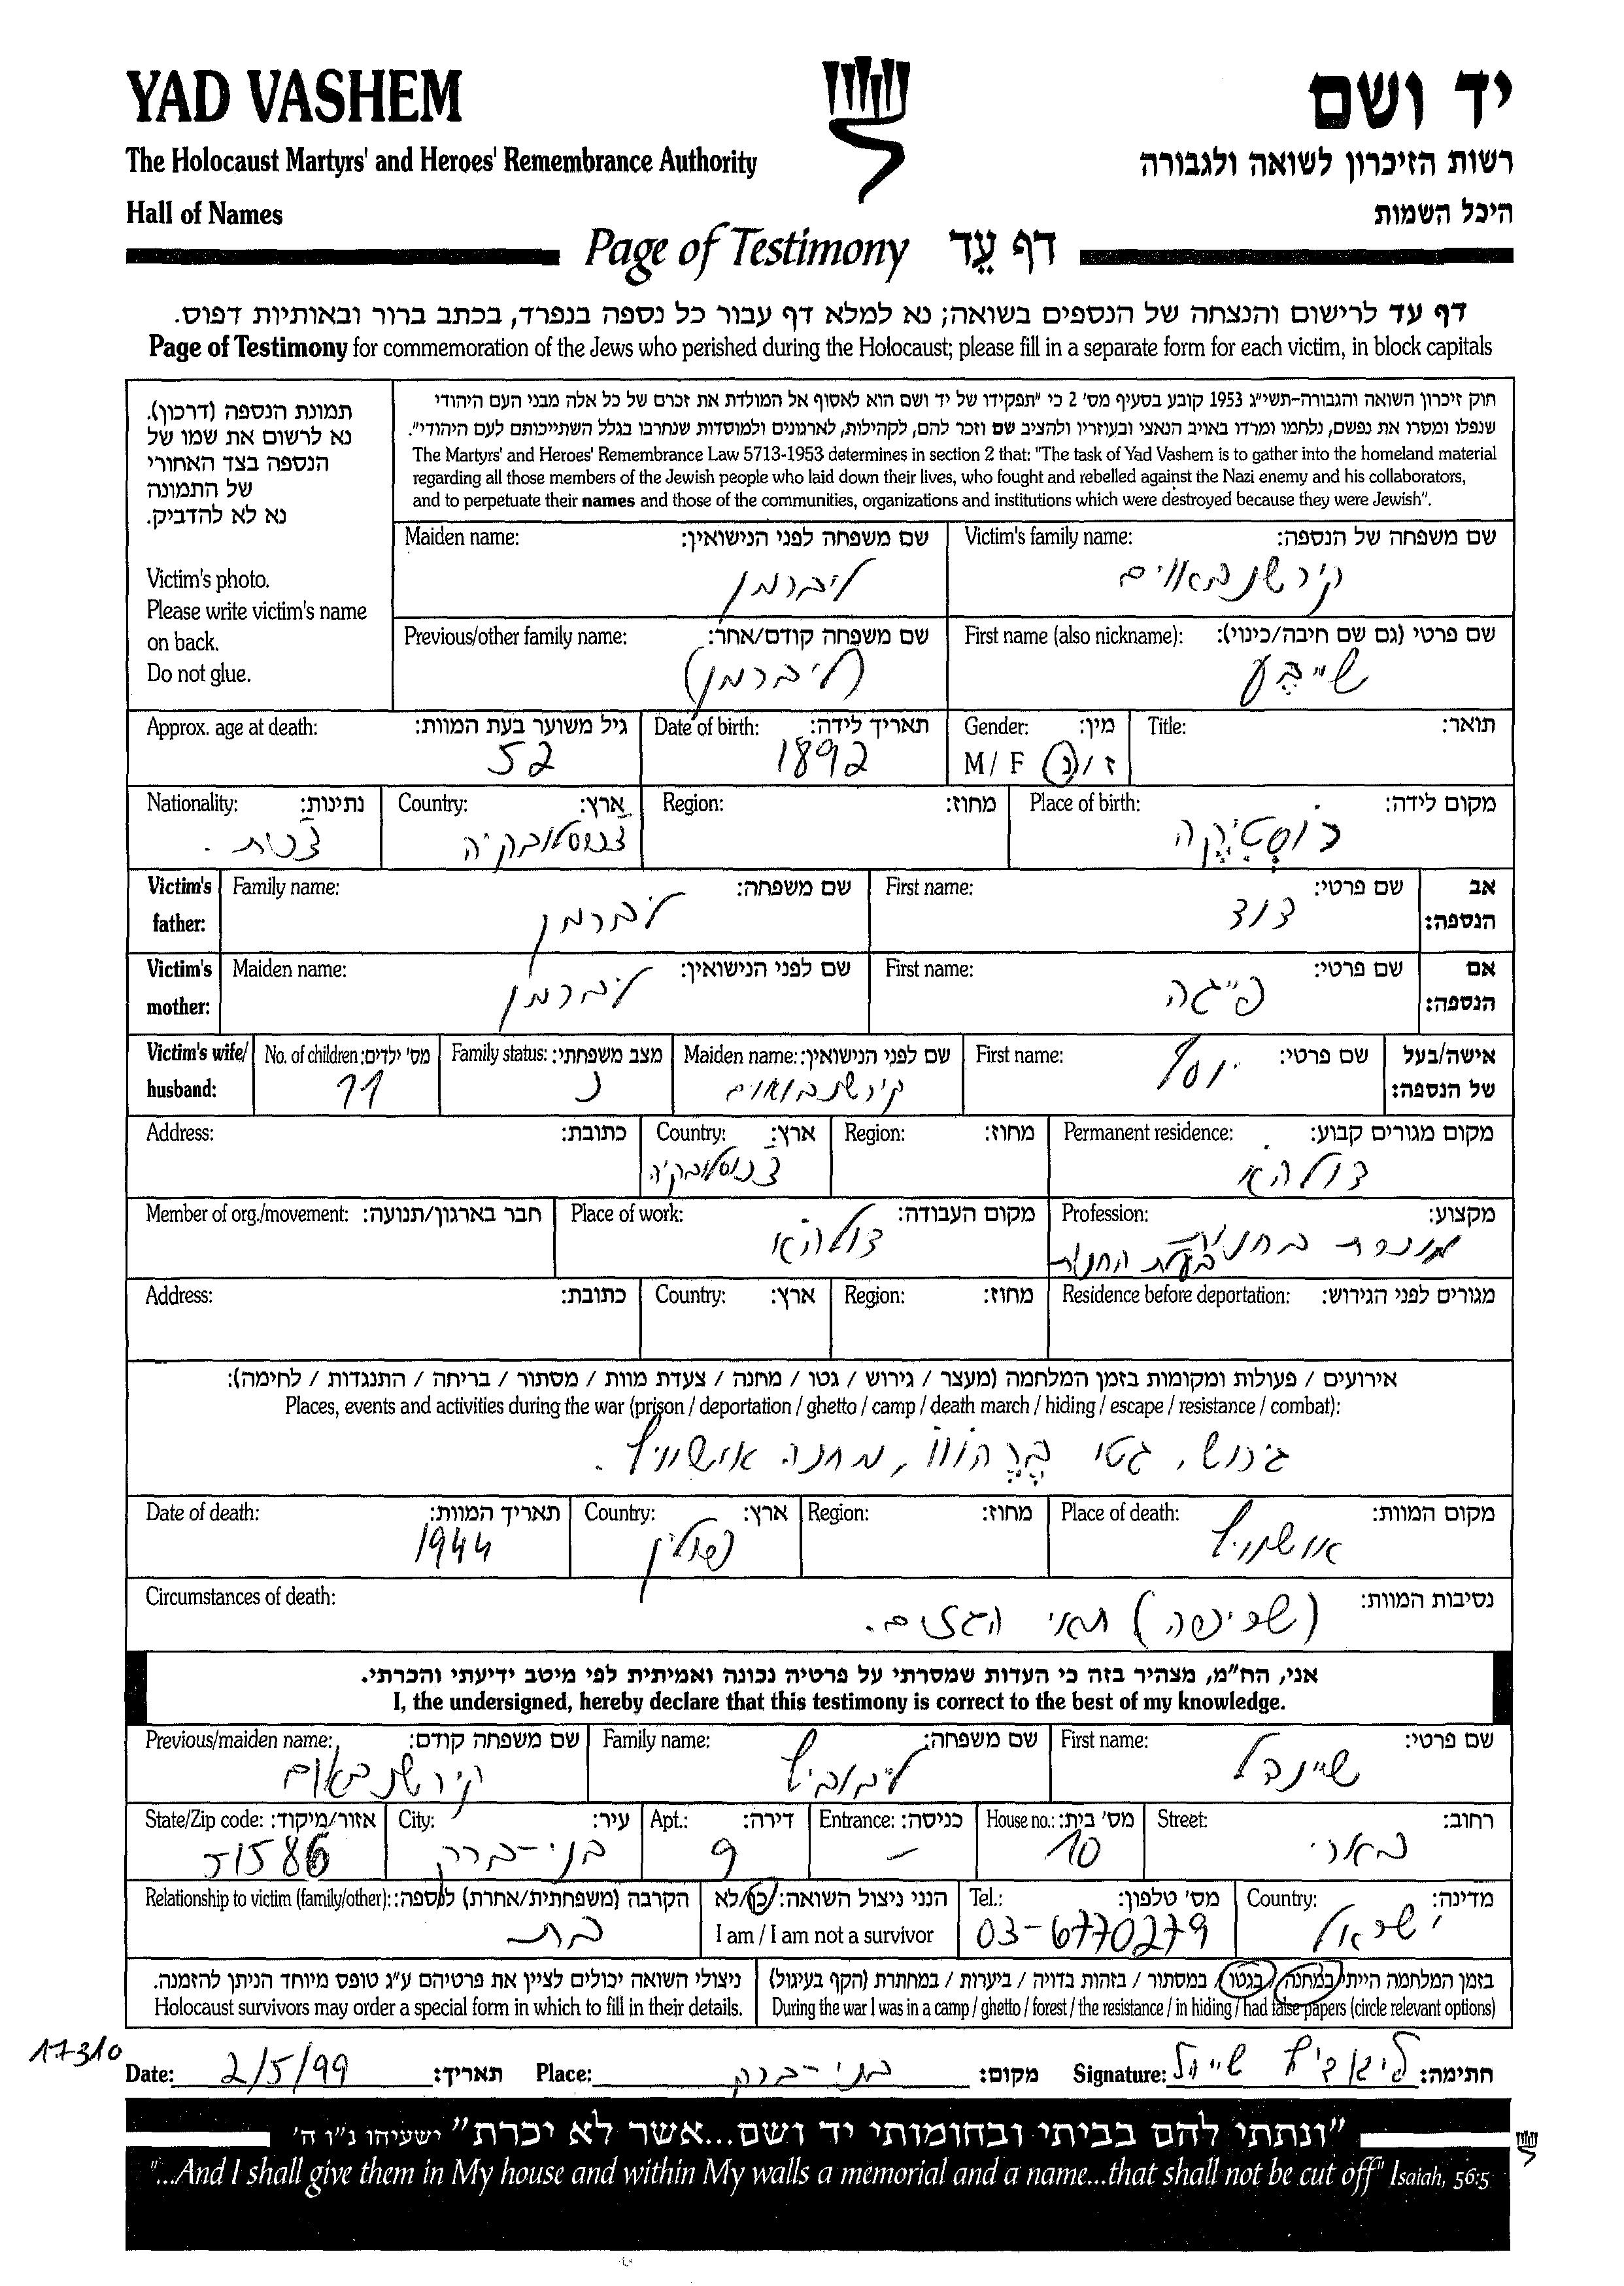 YAD VASHEM
יד ושם
The Holocaust Martyrs' and Heroes' Remembrance Authority
רשות הזיכרון לשואה ולגבורה
Hall of Names
היכל השמות
Page of Testimony דף עֵד
דף עד לרישום והנצחה של הנספים בשואה; נא למלא דף עבור כל נספה בנפרד, בכתב ברור ובאותיות דפוס.
Page of Testimony for commemoration of the Jews who perished during the Holocaust; please fill in a separate form for each victim, in block capitals
תמונת הנספה (דרכון).
נא לרשום את שמו של
הנספה בצד האחורי
של התמונה
נא לא להדביק.
Victim's photo.
Please write victim's name
on back.
Do not glue.
חוק זיכרון השואה והגבורה-תשי"ג 1953 קובע בסעיף מס' 2 כי "תפקידו של יד ושם הוא לאסוף אל המולדת את זכרם של כל אלה מבני העם היהודי
שנפלו ומסרו את נפשם, נלחמו ומרדו באויב הנאצי ובעוזריו ולהציב שם וזכר להם, לקהילות, לארגונים ולמוסדות שנחרבו בגלל השתייכותם לעם היהודי".
The Martyrs' and Heroes' Remembrance Law 5713-1953 determines in section 2 that: "The task of Yad Vashem is to gather into the homeland material
regarding all those members of the Jewish people who laid down their lives, who fought and rebelled against the Nazi enemy and his collaborators,
and to perpetuate their names and those of the communities, organizations and institutions which were destroyed because they were Jewish".
Victim's family name: שם משפחה של הנספה:
קירשנבאוים
Maiden name: שם משפחה לפני הנישואין:
ליברמן
First name (also nickname): שם פרטי (גם שם חיבה/כינוי):
שייבע
Previous/other family name: שם משפחה קודם/אחר:
(ליברמן)
Title: תואר:
Gender: מין:
M / F ז / נ
Date of birth: תאריך לידה:
1892
Approx. age at death: גיל משוער בעת המוות:
52
Place of birth: מקום לידה:
Region: מחוז:
Country: ארץ:
צ'כוסלובקיה
Nationality: נתינות:
צ'כית.
אב הנספה:
First name: שם פרטי:
דוד
Family name: שם משפחה:
ליברמן
Victim's father:
אם הנספה:
First name: שם פרטי:
פייגה
Maiden name: שם לפני הנישואין:
ליברמן
Victim's mother:
אישה/בעל של הנספה:
First name: שם פרטי:
יוסף
Maiden name: שם לפני הנישואין:
קירשנבאוים
Family status: מצב משפחתי:
נ
No. of children: מס' ילדים:
11
Victim's wife/ husband:
Permanent residence: מקום מגורים קבוע:
דולהא
Region: מחוז:
Country: ארץ:
צ'כוסלובקיה
Address: כתובת:
Profession: מקצוע:
מוכרת בחנות
בעלת החנות
Place of work: מקום העבודה:
דולהא
Member of org./movement: חבר בארגון/תנועה:
Residence before deportation: מגורים לפני הגירוש:
Region: מחוז:
Country: ארץ:
Address: כתובת:
אירועים / פעולות ומקומות בזמן המלחמה (מעצר / גירוש / גטו / מחנה / צעדת מוות / מסתור / בריחה / התנגדות / לחימה):
Places, events and activities during the war (prison / deportation / ghetto / camp / death march / hiding / escape / resistance / combat):
גירוש, גטו בֶּרֶהוֹוו, מחנה אושוויץ.
Place of death: מקום המוות:
אושוויץ
Region: מחוז:
Country: ארץ:
פולין
Date of death: תאריך המוות:
1944
Circumstances of death: נסיבות המוות:
(שריפה) תאי הגזים.
אני, הח"מ, מצהיר בזה כי העדות שמסרתי על פרטיה נכונה ואמיתית לפי מיטב ידיעתי והכרתי.
I, the undersigned, hereby declare that this testimony is correct to the best of my knowledge.
First name: שם פרטי:
שיינדל
Family name: שם משפחה:
ליבוביץ
Previous/maiden name: שם משפחה קודם:
קירשנבאום
Street: רחוב:
House no.: מס' בית:
10
Entrance: כניסה:
–
Apt.: דירה:
9
City: עיר:
בני-ברק
State/Zip code: אזור/מיקוד:
51586
Country: מדינה:
ישראל
Tel.: מס' טלפון:
03-6770279
הנני ניצול השואה: כן/לא
I am / I am not a survivor
Relationship to victim (family/other): הקרבה (משפחתית/אחרת) לנספה:
בת
בזמן המלחמה הייתי במחנה / בגטו / במסתור / בזהות בדויה / ביערות / במחתרת (הקף בעיגול)
During the war I was in a camp / ghetto / forest / the resistance / in hiding / had false papers (circle relevant options)
ניצולי השואה יכולים לציין את פרטיהם ע"ג טופס מיוחד הניתן להזמנה.
Holocaust survivors may order a special form in which to fill in their details.
17310
Date: 2/5/99 תאריך: Place: בני-ברק מקום: Signature: חתימה:
"ונתתי להם בביתי ובחומותי יד ושם...אשר לא יכרת" ישעיהו נ"ו ה'
"...And I shall give them in My house and within My walls a memorial and a name...that shall not be cut off" Isaiah, 56:5